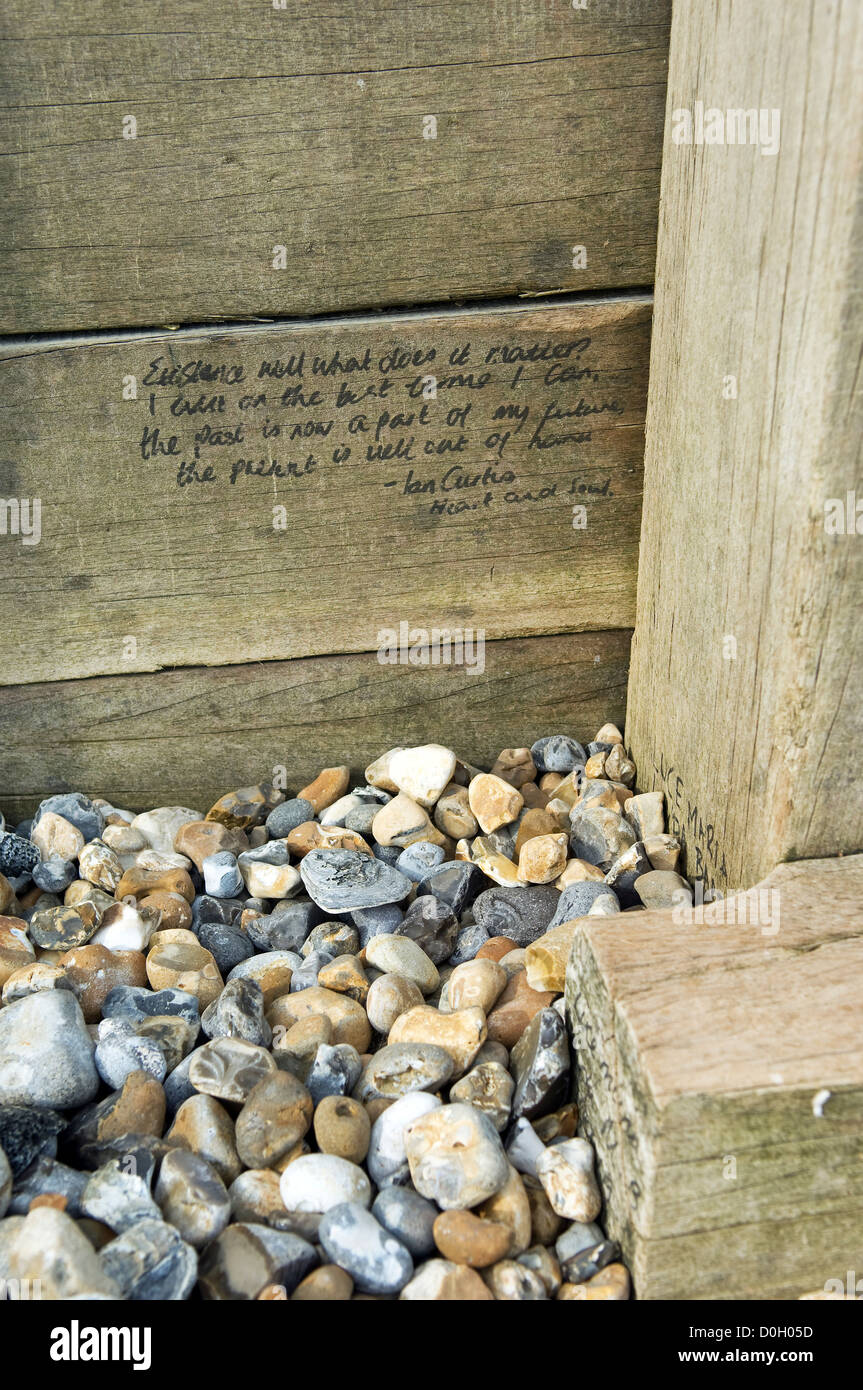 Existence well what does it matter?
I exist on the best terms I can,
the past is now a part of my future,
the present is well out of hand
- Ian Curtis
Heart and Soul.
MARIA
alamy
Image ID: D0H05D
www.alamy.com